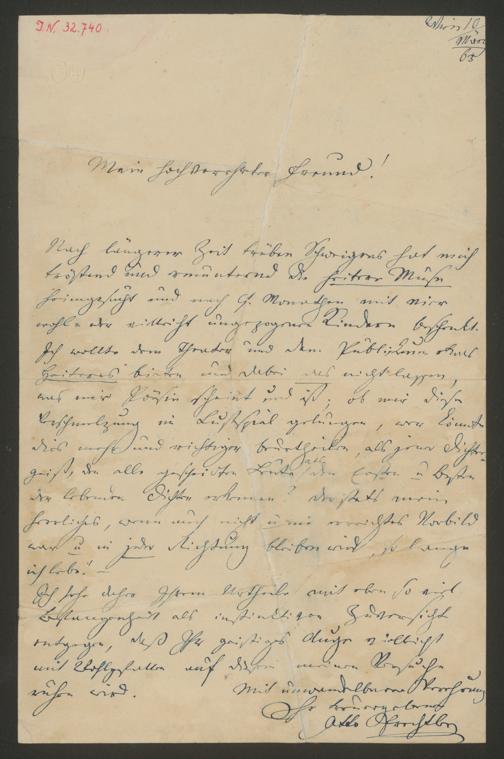 I.N. 32.740
Wien 10
März
65
Mein hochverehrter Freund!
Nach längerer Zeit trüben Schweigens hat mich
tröstend und ermunternd die heitere Muse
heimgesucht und nach 9 Monathen mit vier
wohl oder vielleicht ungezogenen Kindern beschenkt.
Ich wollte dem Theater und dem Publikum etwas
Heiteres bieten und dabei das nicht lassen,
was mir Poesie scheint und ist; ob mir diese
Verschmelzung im Lustspiel gelungen, wer könnte
dies mehr und richtiger beurtheilen, als jener Dichter-
geist, den alle gescheidten Leute den Ersten u Besten
der lebenden Dichter erkennen? Der stets mein
herrliches, wenn auch nicht u nie erreichtes Vorbild
war u in jeder Richtung bleiben wird, so lange
ich lebe! –
Ich sehe daher Ihrem Urtheile mit eben so viel
Befangenheit als instinktiver Zuversicht
entgegen, daß Ihr geistiges Auge vielleicht
mit Wohlgefallen auf diesem meinem Versuche
ruhen wird.
Mit unwandelbarer Verehrung
Ihr treuergebener
Otto Prechtler